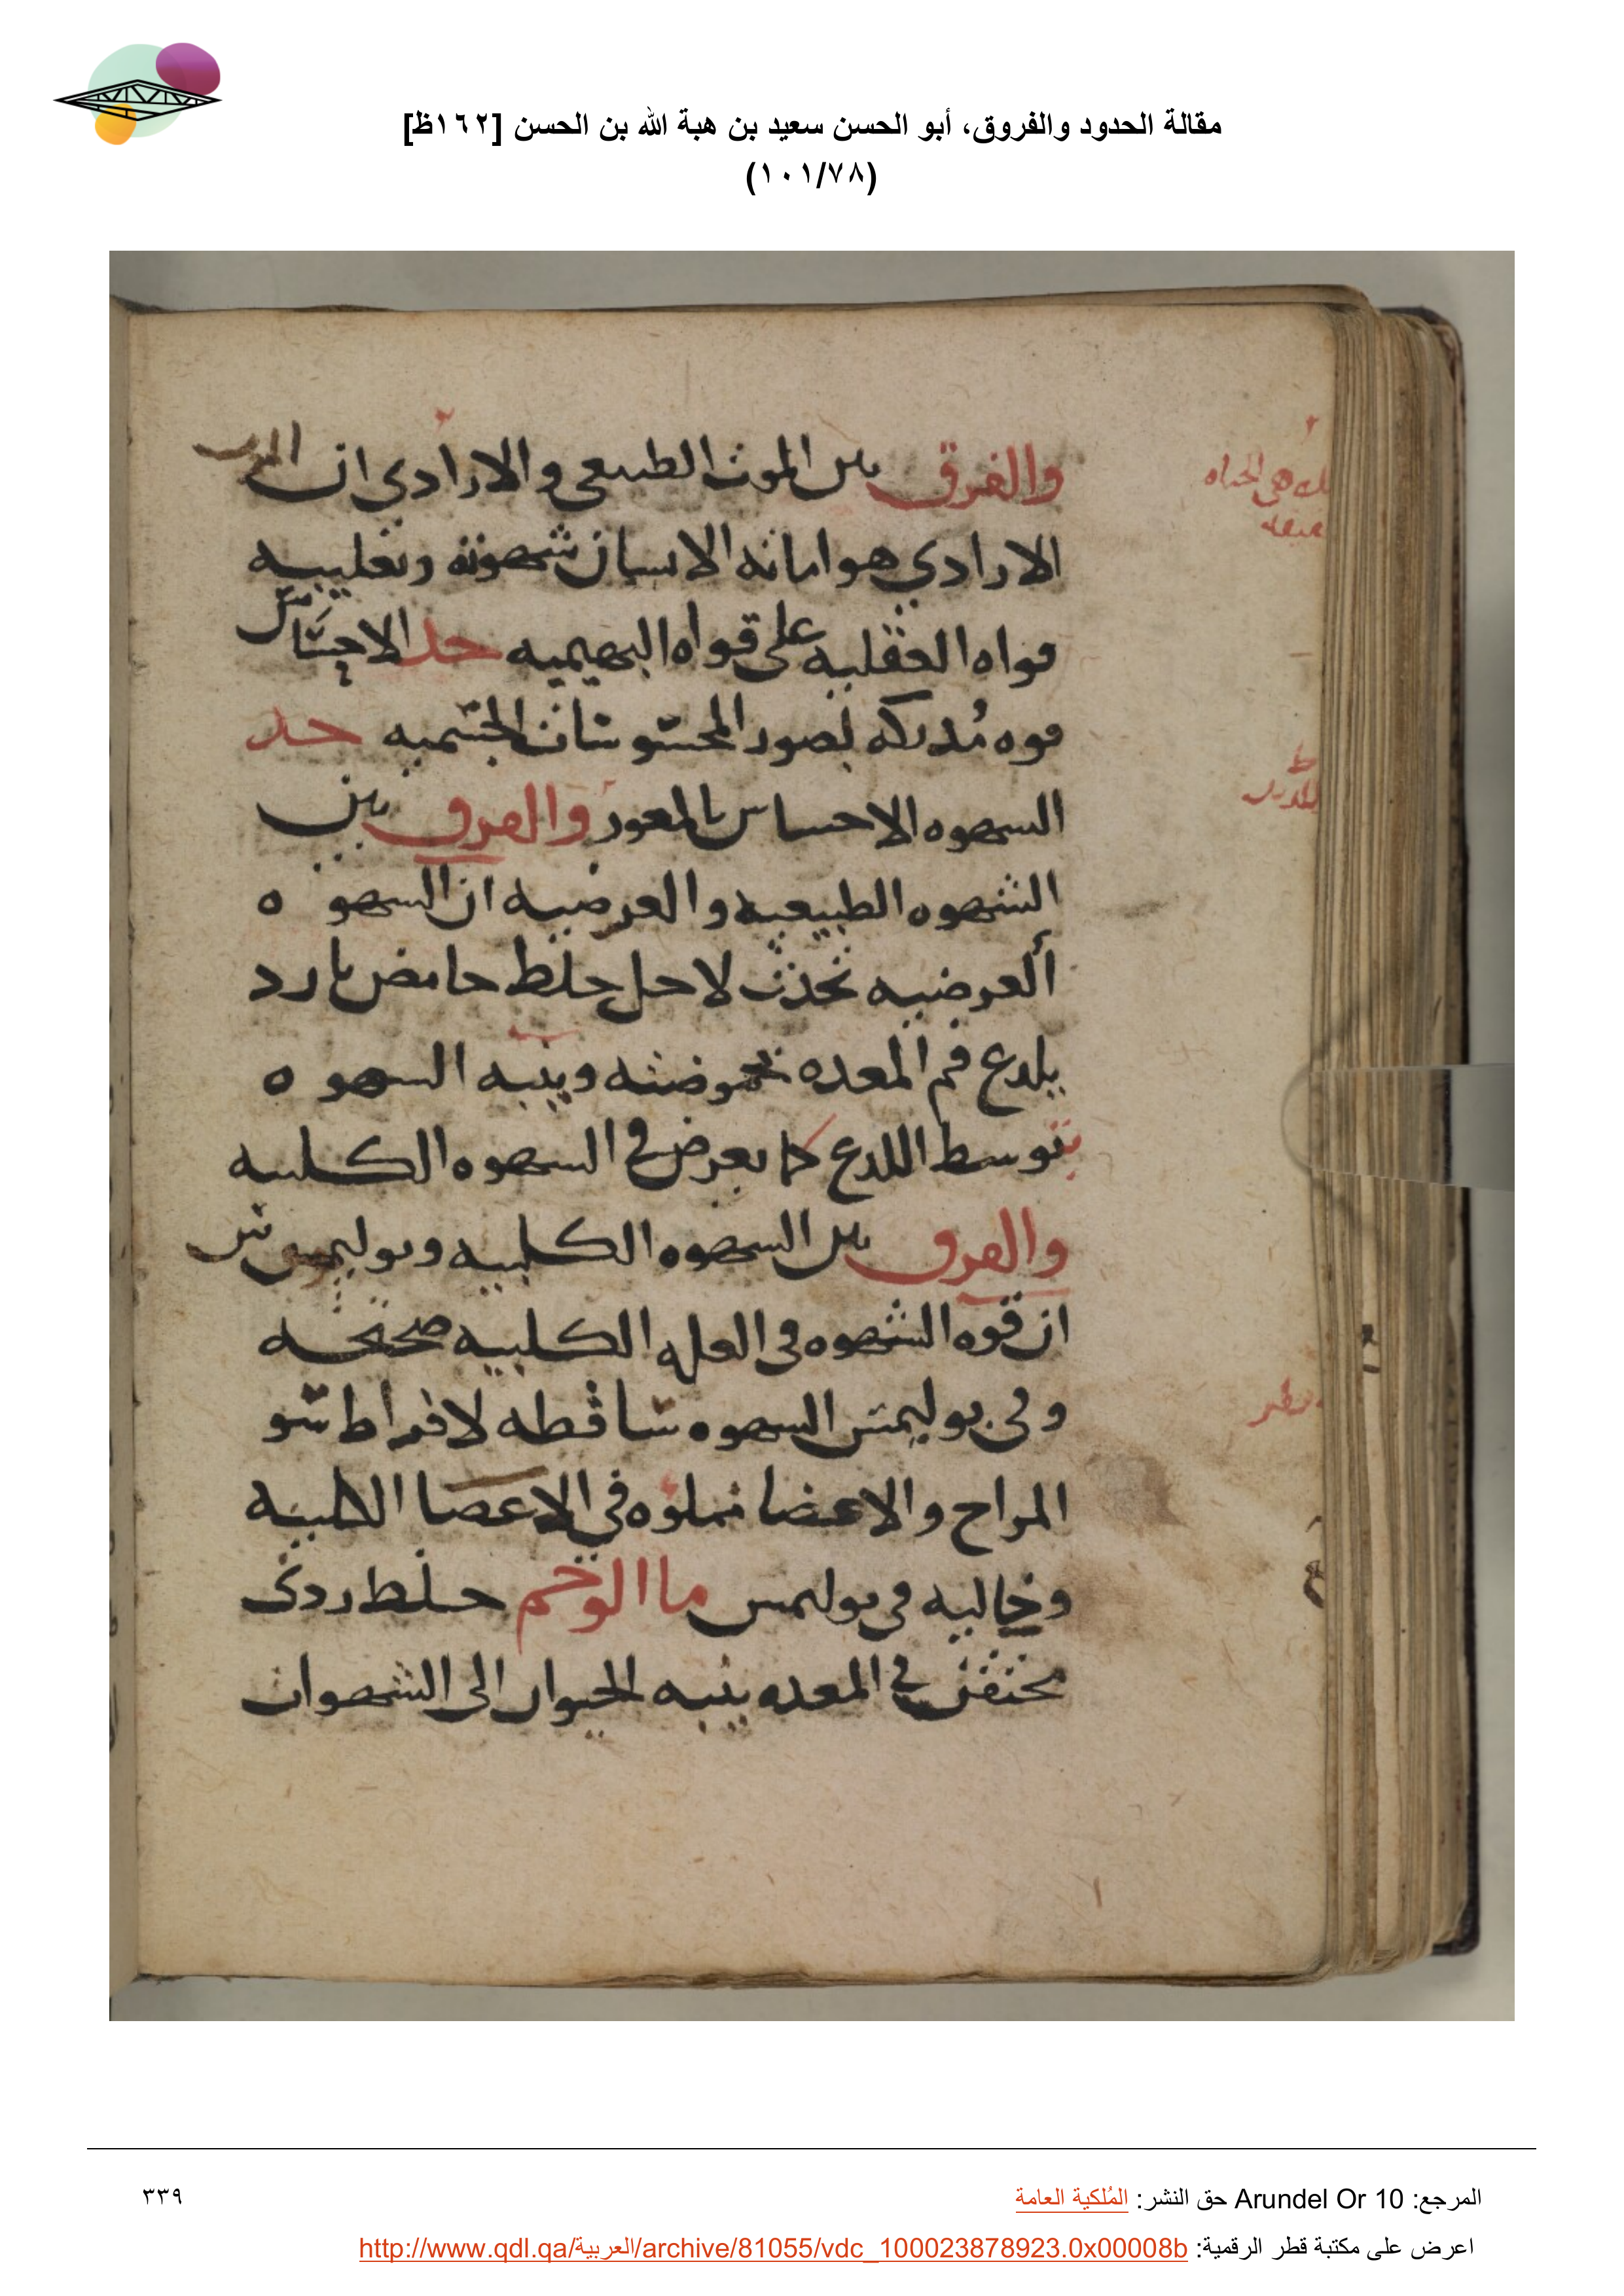 مقالة الحدود والفروق، أبو الحسن سعيد بن هبة الله بن الحسن [١٦٢ظ]
(١٠١/٧٨)
والفرق بين الموت الطبيعي والارادي ان
الارادي هو اماته الانسان شهوته وتغليبه
قواه العقليه على قواه البهيميه حد الاحساس
قوه مُدركه لصور المحسوسات الجسميه حد
الشهوه الاحساس بالمعوز والفرق بين
الشهوه الطبيعيه والعرضيه ان الشهوه
العرضيه تحدث لاجل خلط حامض بارد
يلدع فم المعده بحموضته وينبه الشهوه
بتوسط اللدع كما يعرض في الشهوه الكلبيه
والفرق بين الشهوه الكلبيه وبوليموس
ان قوه الشهوه في العله الكلبيه صحيحه
وفي بوليمس الشهوه ساقطه لافراط سو
المزاج والاعضا مملوه في الاعضا الكلبيه
وخاليه في بوليمس ما الوحم خلط ردئ
محتقن في المعده ينبه الحيوان الى الشهوات
المرجع: Arundel Or 10 حق النشر: المُلكية العامة
٣٣٩
اعرض على مكتبة قطر الرقمية: http://www.qdl.qa/العربية/archive/81055/vdc_100023878923.0x00008b